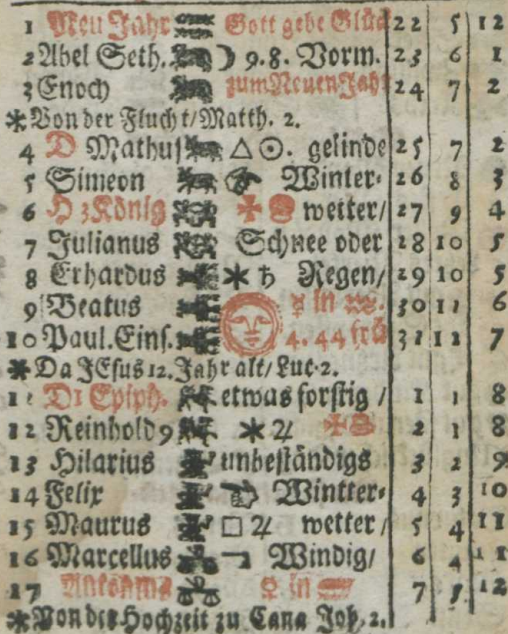 1 Neu Jahr Gott gebe Glück 22 5 12
2 Abel Seth. ☽ 9.8. Vorm. 23 6 1
3 Enoch zum Neuen Jahr 24 7 2
* Von der Flucht/Matth. 2.
4 D Mathus △ ☉. gelinde 25 7 2
5 Simeon Winter- 26 8 3
6 H 3 König wetter/ 27 9 4
7 Julianus Schnee oder 28 10 5
8 Erhardus * ♄ Regen/ 29 10 5
9 Beatus ☿ in ♒. 30 11 6
10 Paul. Eins. 4. 44 frü 31 12 7
* Da JEsus 12. Jahr alt/Luc. 2.
11 D1 Epiph. etwas forstig / 1 1 8
12 Reinhold 9 * ♃ 2 1 8
13 Hilarius unbeständigs 3 2 9
14 Felix Wintter- 4 3 10
15 Maurus □ ♃ wetter/ 5 4 11
16 Marcellus Windig/ 6 4 11
17 Antonius ♀ in 7 5 12
* Von der Hochzeit zu Cana Joh. 2.